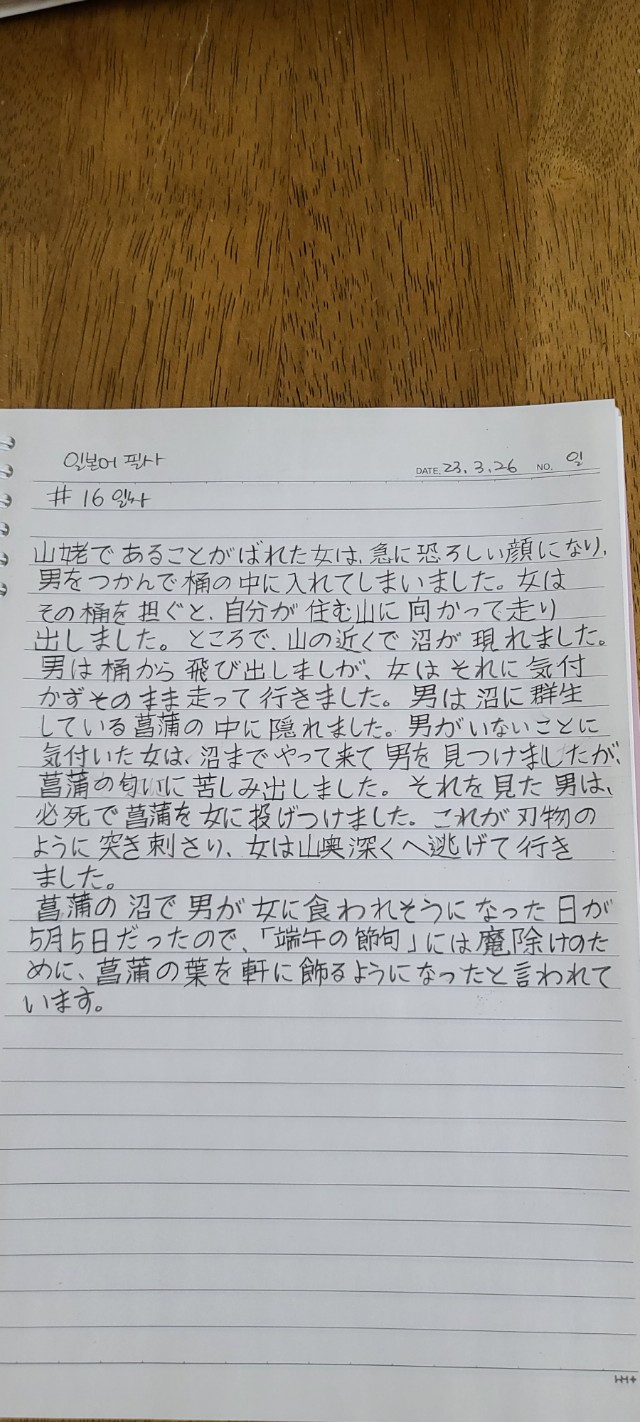 일본어 필사
DATE. 23. 3. 26 NO. 일
# 16일차
山姥であることがばれた女は、急に恐ろしい顔になり、
男をつかんで桶の中に入れてしまいました。女は
その桶を担ぐと、自分が住む山に向かって走り
出しました。ところで、山の近くで沼が現れました。
男は桶から飛び出しましが、女はそれに気付
かずそのまま走って行きました。男は沼に群生
している菖蒲の中に隠れました。男がいないことに
気付いた女は、沼までやって来て男を見つけましたが、
菖蒲の匂いに苦しみ出しました。それを見た男は、
必死で菖蒲を女に投げつけました。これが刃物の
ように突き刺さり、女は山奥深くへ逃げて行き
ました。
菖蒲の沼で男が女に食われそうになった日が
5月5日だったので、「端午の節句」には魔除けのた
めに、菖蒲の葉を軒に飾るようになったと言われて
います。